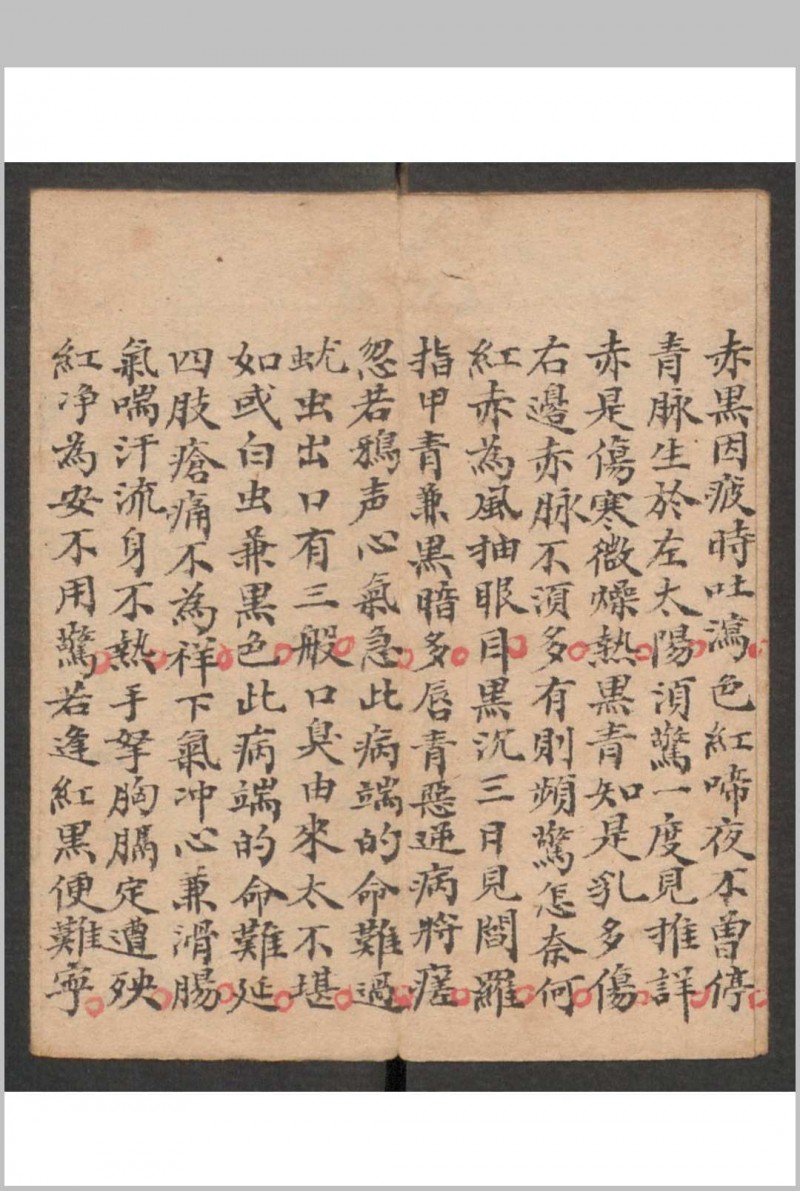 赤黒因疲時吐瀉色紅啼夜不曾停
青脉生於左太陽湏驚一度見推詳
赤是傷寒微燥熱黒青知是乳多傷
右邊赤脉不湏多有則頻驚怎奈何
紅赤為風抽眼目黒沉三日見閻羅
指甲青兼黒暗多唇青惡逆病將瘥
忽若鴉声心氣急此病端的命難過
蚘虫出口有三般口臭由來太不堪
如或白虫兼黒色此病端的命難延
四肢瘡痛不為祥下氣冲心兼滑腸
氣喘汗流身不熱手拏胸膈定遭殃
紅净為安不用驚若逢紅黒便難寧